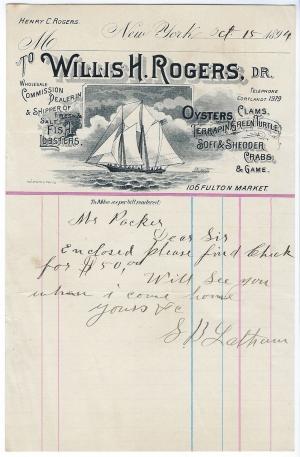 HENRY C. ROGERS.
New York Oct 15 1894
M
TO WILLIS H. ROGERS, DR.
WHOLESALE
COMMISSION DEALER IN
& SHIPPER OF FRESH &
SALT FISH
LOBSTERS,
TELEPHONE
CORTLANDT 1979
OYSTERS, CLAMS,
TERRAPIN, GREEN TURTLE,
SOFT & SHEDDER
CRABS
& GAME.
106 FULTON MARKET.
To Mdse as per bill rendered:
Mr Packer
Dear Sir
Enclosed Please find Check
for $50,00 Will See you
when i come home
Yours &c
S B Latham